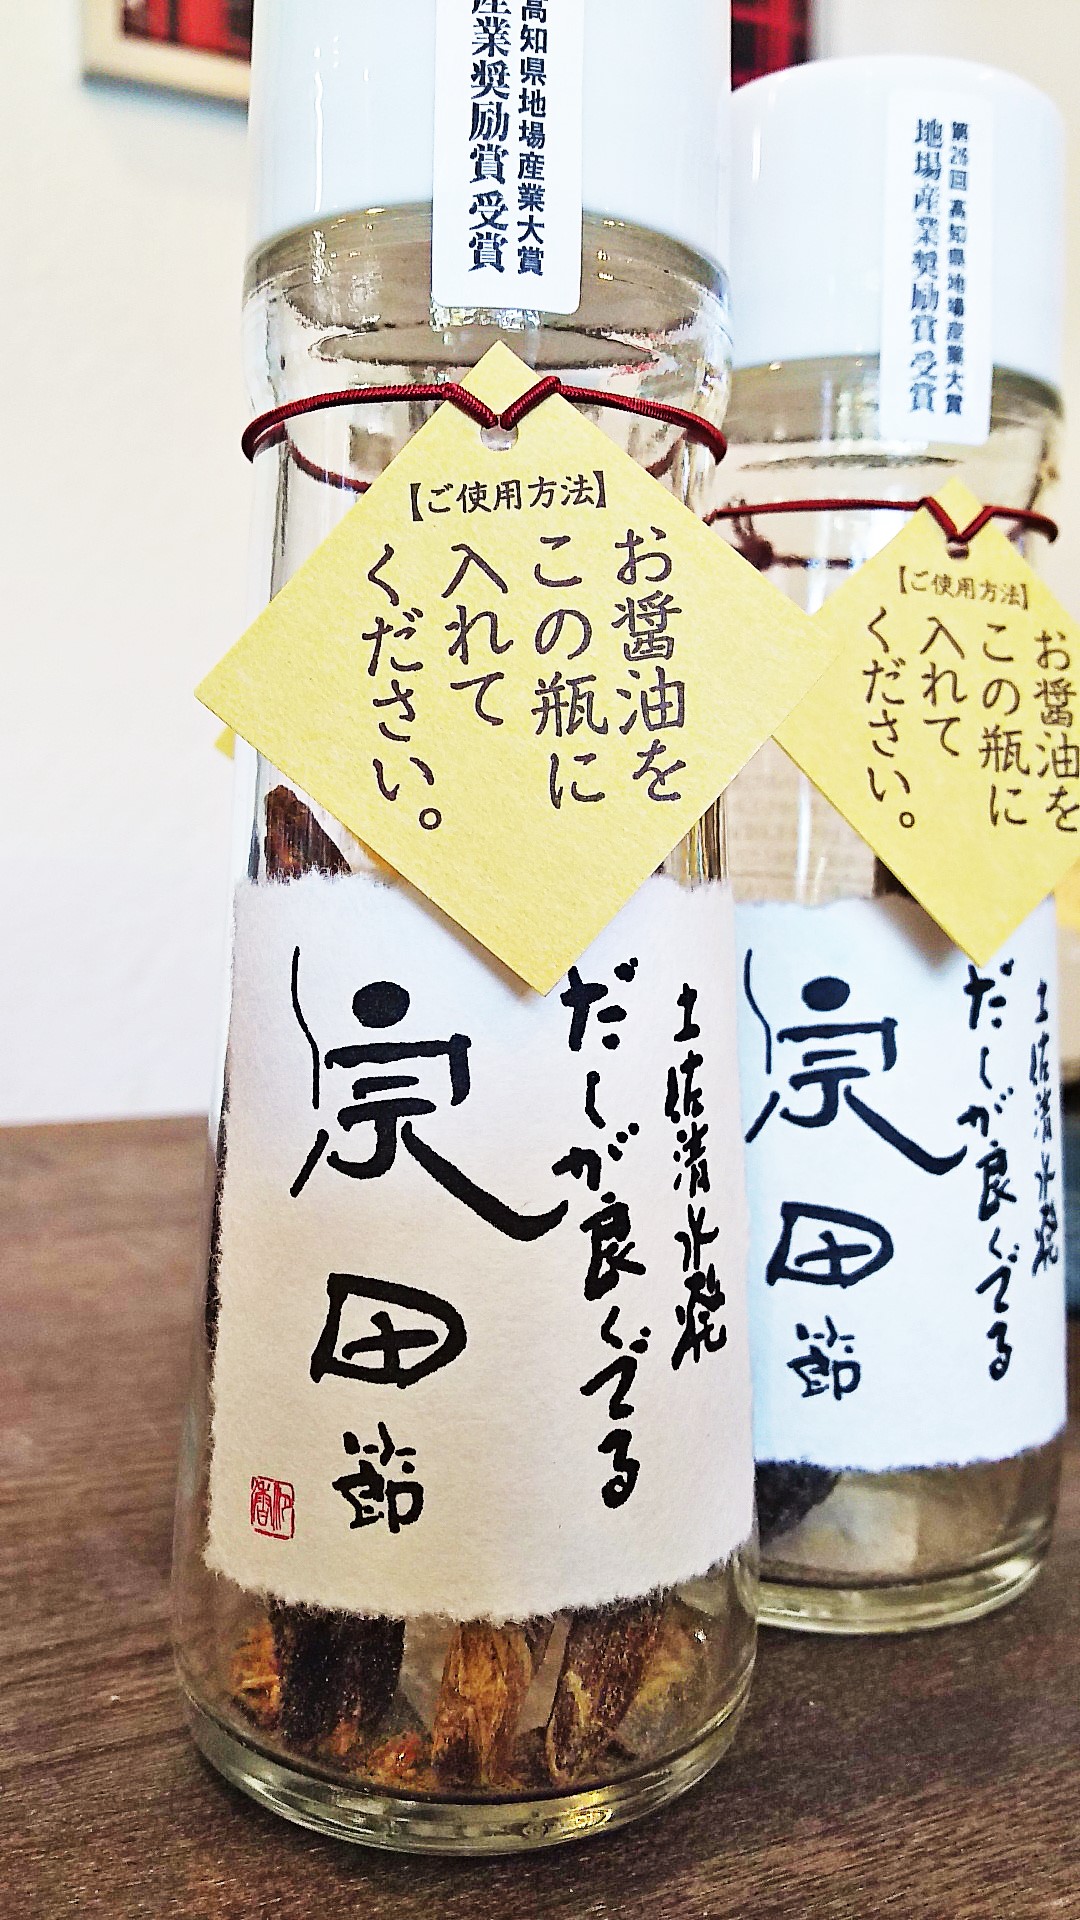 高知県地場産業大賞
産業奨励賞受賞
【ご使用方法】
お醤油を
この瓶に
入れて
ください。
土佐清水発
だしが良くでる
宗田節
第26回 高知県地場産業大賞
地場産業奨励賞受賞
【ご使用方法】
お醤油を
この瓶に
入れて
ください。
土佐清水発
だしが良くでる
宗田節